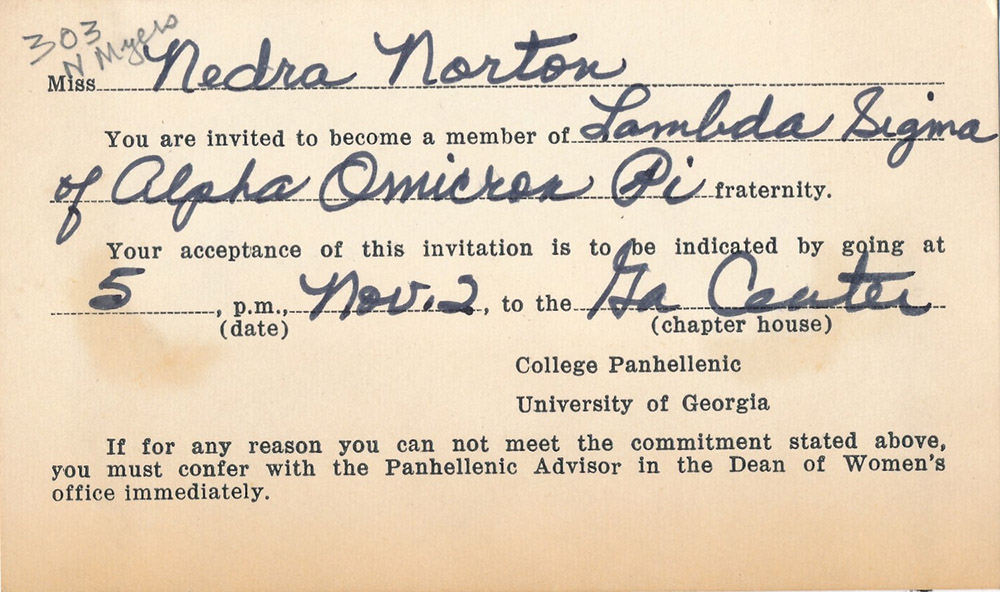 303
N Myers
Miss Nedra Norton
You are invited to become a member of Lambda Sigma
of Alpha Omicron Pi fraternity.
Your acceptance of this invitation is to be indicated by going at
5, p.m., Nov. 2, to the Ga Center
(date) (chapter house)
College Panhellenic
University of Georgia
If for any reason you can not meet the commitment stated above,
you must confer with the Panhellenic Advisor in the Dean of Women's
office immediately.